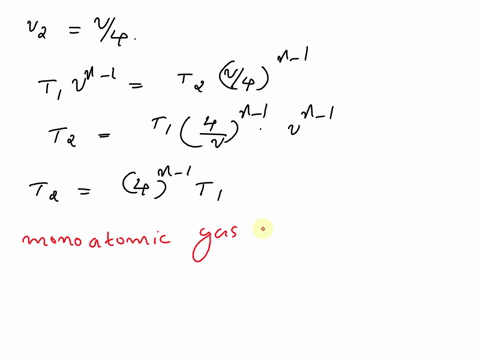 v2 = v/4.
T1 v^n-1 = T2 (v/4)^n-1
T2 = T1 (4/v)^n-1 . v^n-1
T2 = (4)^n-1 T1
monoatomic gas